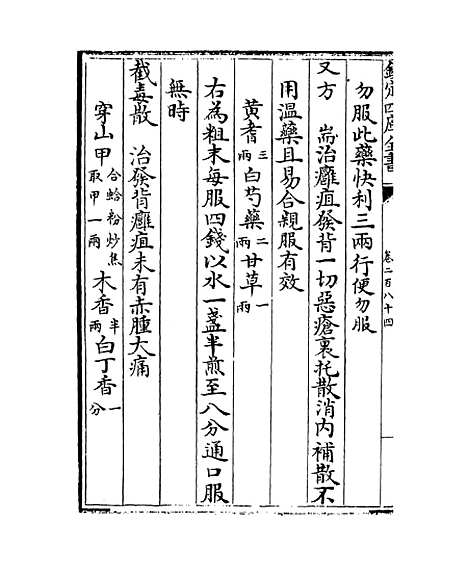 欽定四庫全書
卷二百八十四
勿服此藥快利三兩行便勿服
又方 耑治癰疽發背一切惡瘡裏托散消内補散不
用温藥且易合親服有效
黄耆三兩白芍藥二兩甘草一兩
右為粗末每服四錢以水一盞半煎至八分通口服
無時
截毒散 治發背癰疽未有赤腫大痛
穿山甲合蛤粉炒焦取甲一兩木香半兩白丁香一分